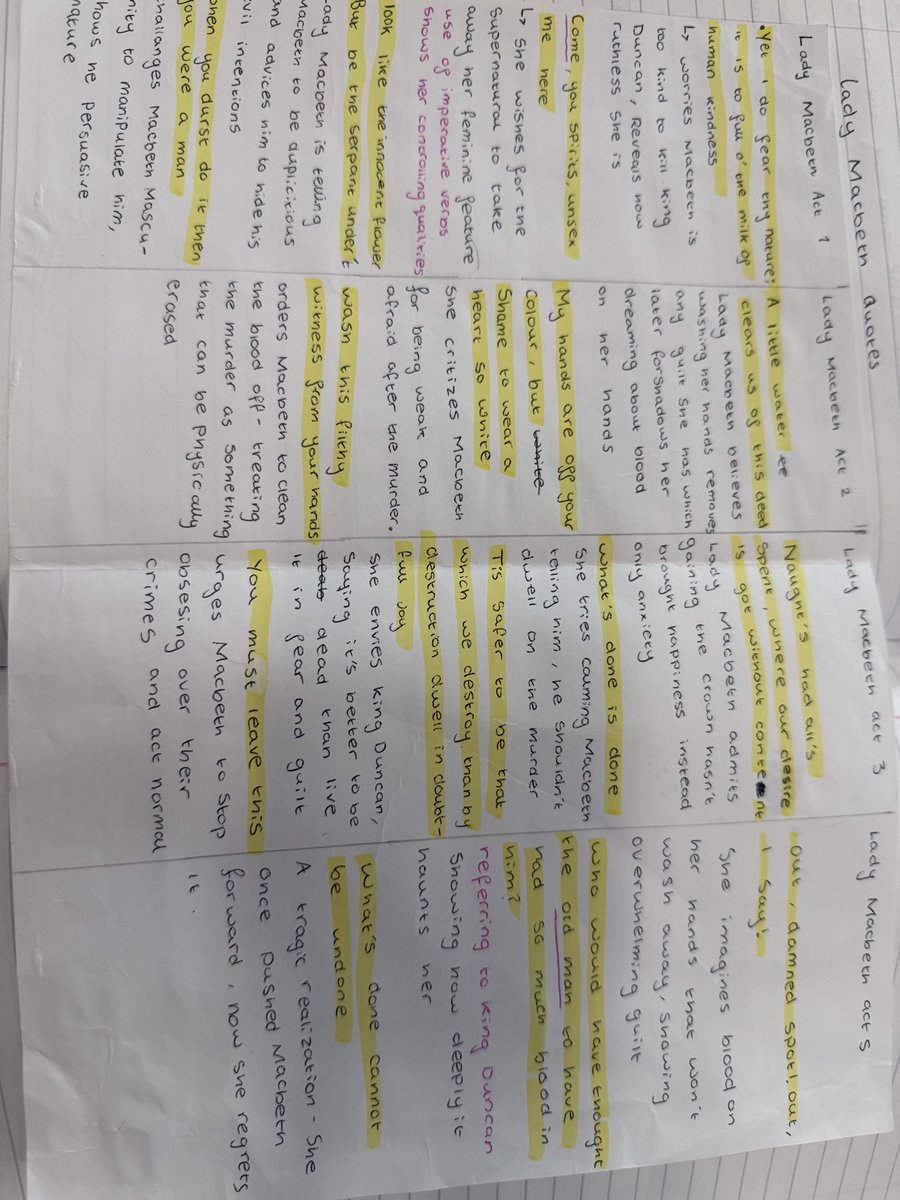 Lady Macbeth quotes
Lady Macbeth Act 1
Yet I do fear thy nature;
it is to full o' the milk of
human kindness
↳ worries Macbeth is
too kind to kill king
Duncan, Reveals how
ruthless she is
Come, you spirits, unsex
me here
↳ She wishes for the
Supernatural to take
away her feminine feature
use of imperative verbs
shows her conrolling qualities
look like the innocent flower
But be the serpant under't
ady Macbeth is telling
Macbeth to be duplicitious
and advices him to hide his
evil intentions
when you durst do it then
you were a man
challanges Macbeth Mascu-
nity to manipulate him,
shows he persuasive
nature
Lady Macbeth Act 2
A little water
clears us of this deed
Lady Macbeth believes
washing her hands removes
any guilt she has which
later forshadows her
dreaming about blood
on her hands
My hands are off your
colour, but white
Shame to wear a
heart so white
She critizes Macbeth
for being weak and
afraid after the murder.
wash this filthy
witness from your hands
orders Macbeth to clean
the blood off - treating
the murder as something
that can be physically
erased
Lady Macbeth act 3
Naught's had all's
spent, where our desire
is got without content
Lady Macbeth admits
gaining the crown hasn't
brought happiness instead
only anxiety
what's done is done
She tries calming Macbeth
telling him, he shouldn't
dwell on the murder
Tis safer to be that
which we destroy than by
destruction dwell in doubt-
full joy
she envies king Duncan,
saying it's better to be
dead than live
it in fear and guilt
You must leave this
urges Macbeth to stop
obsesing over their
crimes and act normal
Lady Macbeth act 5
out, damned spot!, out,
I say!
She imagines blood on
her hands that won't
wash away, showing
overwhelming guilt
who would have thought
the old man to have
had so much blood in
him?
referring to king Duncan
showing how deeply it
haunts her
what's done cannot
be undone
A tragic realization - she
once pushed Macbeth
forward, now she regrets
it.